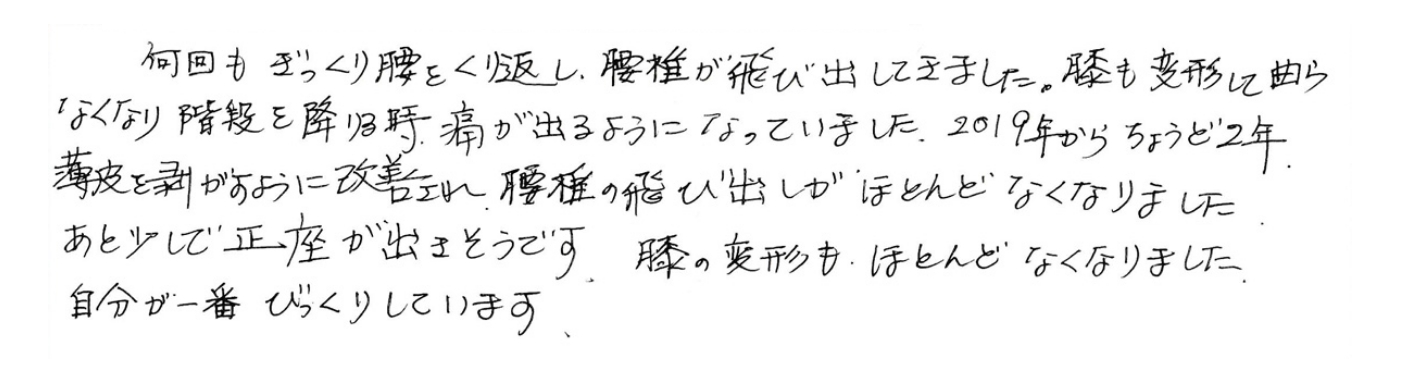 何回もぎっくり腰をくり返し、腰椎が飛び出してきました。膝も変形して曲ら
なくなり階段を降りる時、痛が出るようになっていました、2019年からちょうど2年、
薄皮を剥がすように改善され、腰椎の飛び出しがほとんどなくなりました、
あと少しで正座が出きそうです、膝の変形も、ほとんどなくなりました、
自分が一番びっくりしています、